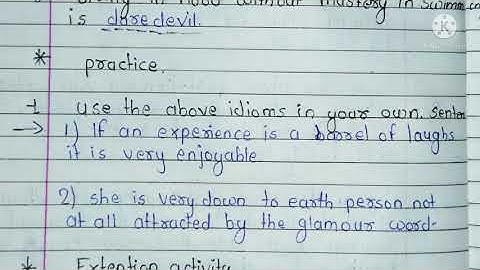 in flood without mastery in swimm
is daredevil.
* practice.
use the above idioms in your own. Senten
→ 1) If an experience is a barrel of laughs
it is very enjoyable
2) she is very down to earth person not
at all attracted by the glamour word-
Extention activity